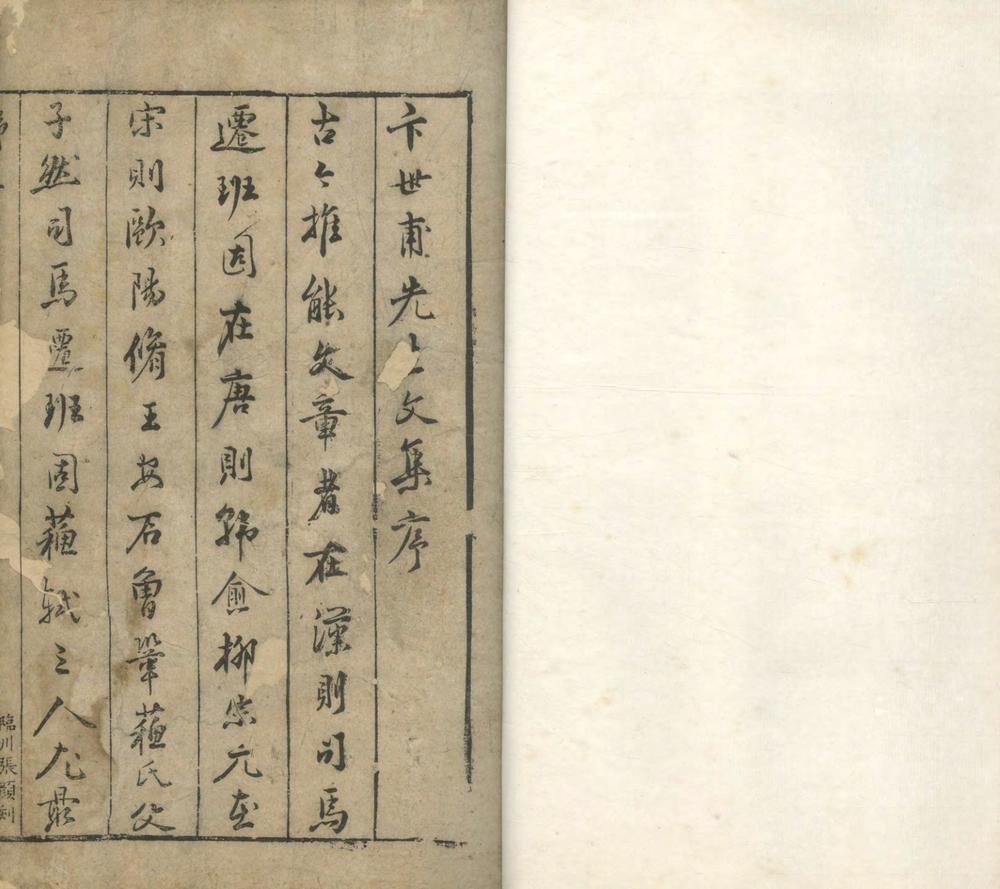 卞世甫先生文集序
古今推能文章者在漢則司馬
遷班固在唐則韓愈柳宗元在
宋則歐陽脩王安石曾鞏蘇氏父
子然司馬遷班固蘇軾三人尤最
臨川張顯刻